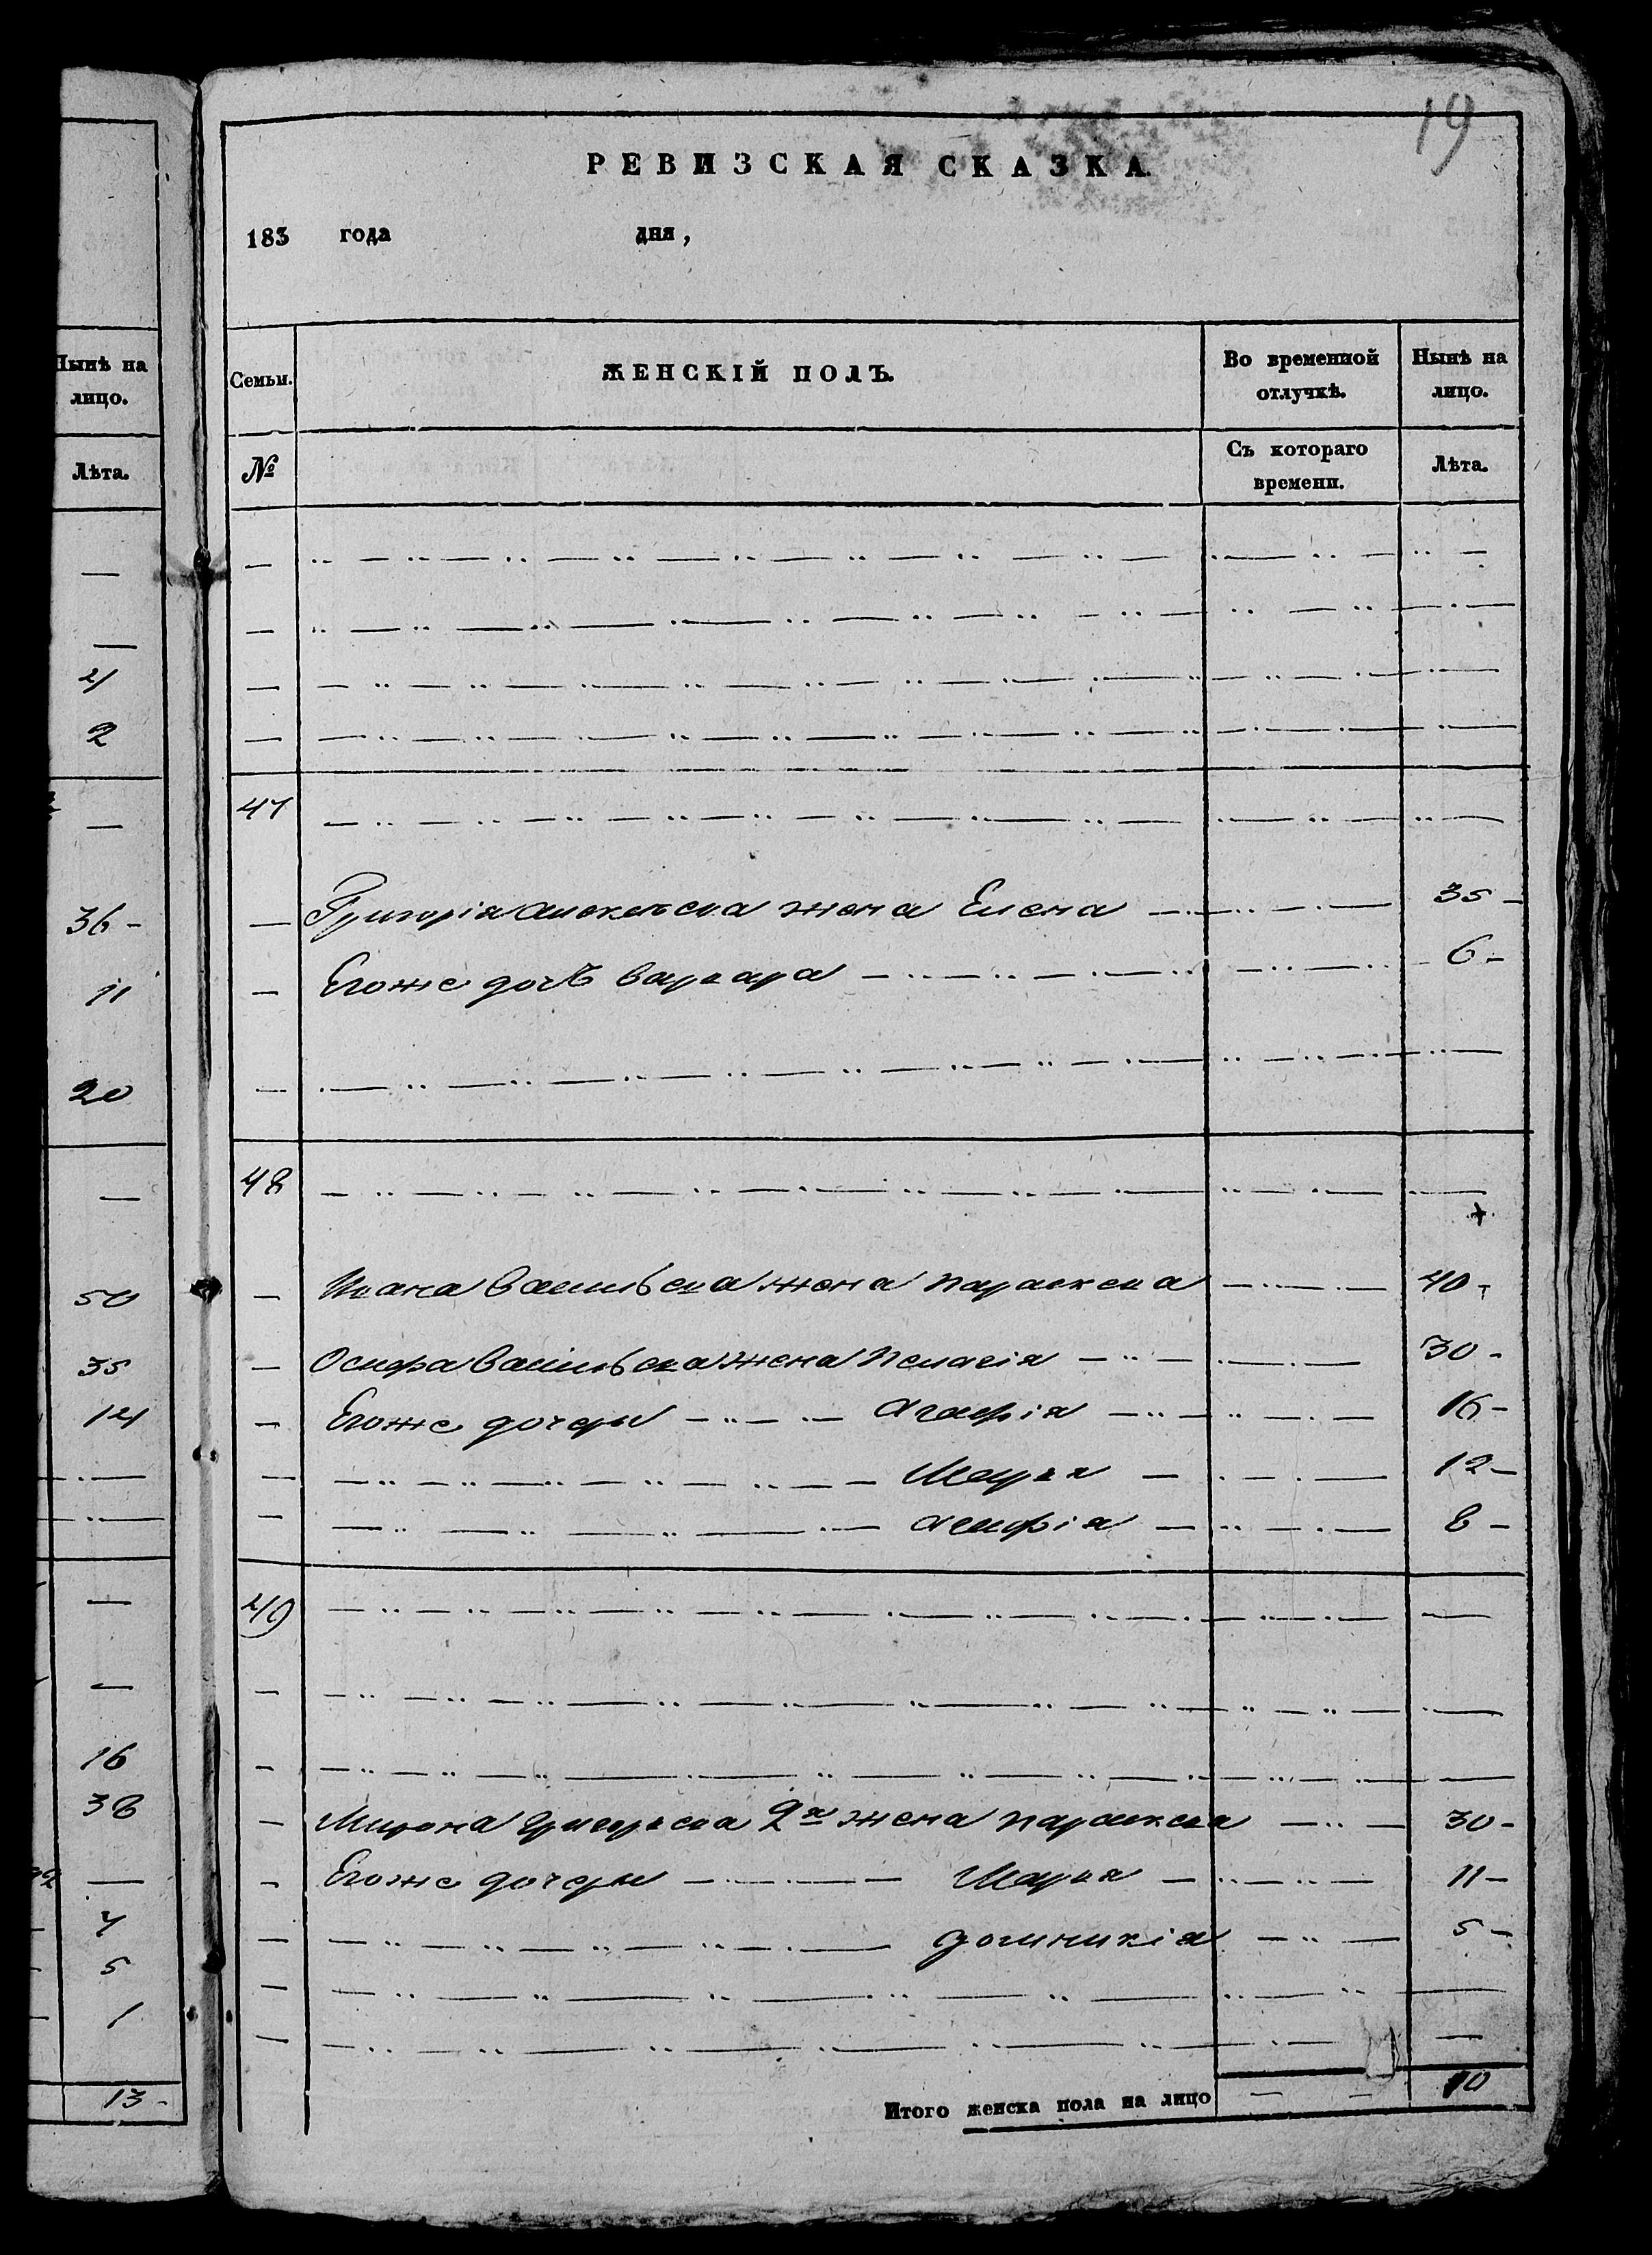 19
РЕВИЗСКАЯ СКАЗКА.
183 года дня,
Нынѣ на лицо.
Лѣта.
—
—
4
2
—
36 -
11
20
—
50
35
14
—
—
16
38
—
4
5
1
13 -
Семьи. ЖЕНСКІЙ ПОЛЪ. Во временной отлучкѣ. Нынѣ на лицо.
№ Съ котораго времени. Лѣта.
47
Григорія Алексѣева жена Елена 35 -
Егоже дочь варвара 6 -
48
Ивана Васильева жена параскева 40 -
Осифа Васильева жена Пелагія 30 -
Егоже дочери Агафія 16 -
Марья 12 -
8 -
49
Мирона Григорьева 2я жена параскева 30 -
Егоже дочери Марья 11 -
доминикія 5 -
Итого женска пола на лицо — — 10